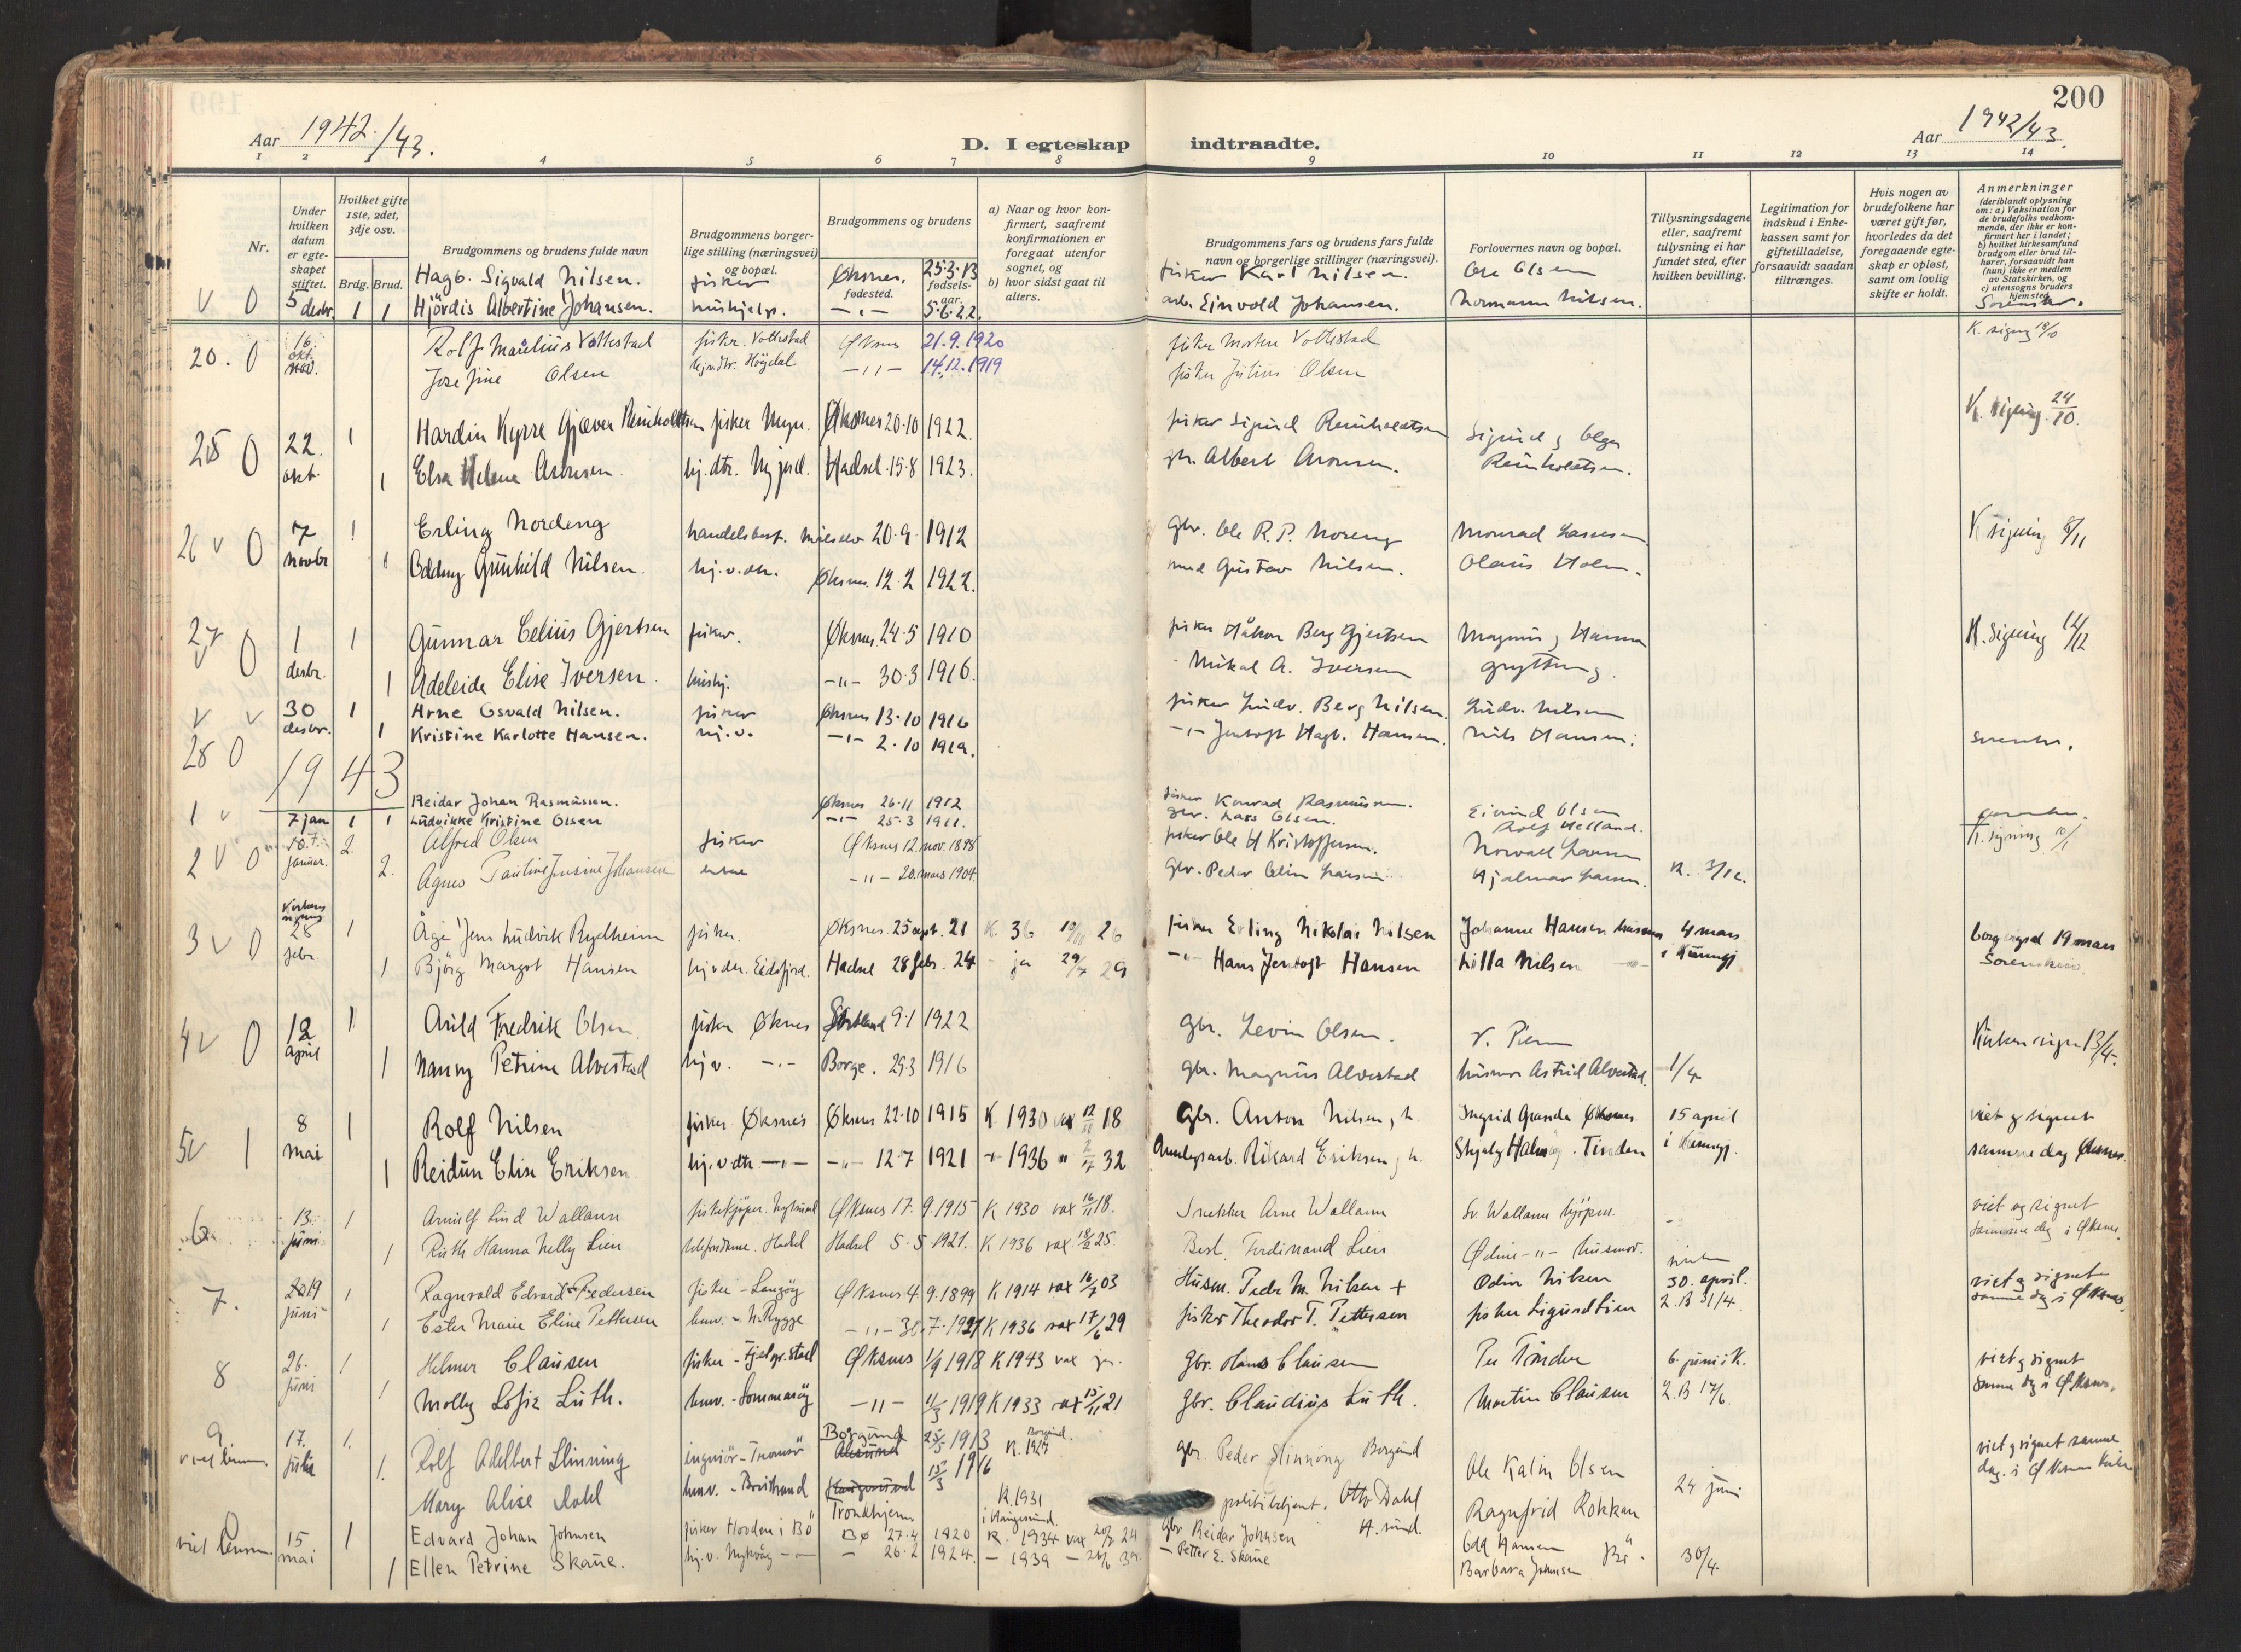 200
Aar 1942./43.
D. I egteskap indtraadte.
Aar 1942/43.
1 2 3 4 5 6 7 8 9 10 11 12 13 14
Nr.
Under hvilken datum er egteskapet stiftet.
Hvilket gifte 1ste, 2det, 3dje osv.
Brdg. Brud.
Brudgommens og brudens fulde navn
Brudgommens borgerlige stilling (næringsvei) og bopæl.
Brudgommens og brudens
fødested.
fødselsaar.
a) Naar og hvor konfirmert, saafremt konfirmationen er foregaat utenfor sognet, og
b) hvor sidst gaat til alters.
Brudgommens fars og brudens fars fulde navn og borgerlige stillinger (næringsvei).
Forlovernes navn og bopæl.
Tillysningsdagene eller, saafremt tillysning ei har fundet sted, efter hvilken bevilling.
Legitimation for indskud i Enkekassen samt for giftetilladelse, forsaavidt saadan tiltrænges.
Hvis nogen av brudefolkene har været gift før, hvorledes da det foregaaende egteskap er opløst, samt om lovlig skifte er holdt.
Anmerkninger (deriblandt oplysning om: a) Vaksination for de brudefolks vedkommende, der ikke er konfirmert her i landet; b) hvilket kirkesamfund brudgom eller brud tilhører, forsaavidt han (hun) ikke er medlem av Statskirken, og c) utensogns bruders hjemsted.
Hagb. Sigvald Nilsen. fisker Øksnes. 25.3.13 fisker Karl Nilsen. Ole Olsen
V 0 5 desbr. 1 1 Hjördis Albertine Johansen. hushjelp. -"- 5.6.22. arb. Einvold Johansen. Normann Nilsen.
20. 0 16. okt. Rolf Maulius Vottestad fisker. Vottestad Øksnes 21.9.1920 fisker Morten Vottestad K. signg 18/10
Josefine Olsen Höydal -"- 14.12.1919 fisker Julius Olsen
25 0 22. okt 1 Hardin Kyrre Gjæver Reinholdtsen fisker Myre. Øksnes 20.10 1922. fisker Sigurd Reinholdtsen Sigurd g Olga K. signing 24/10.
1 Elsa Helene Aronsen. hj.dtr. Hadsel. 15.8 1923. Albert Aronsen. Reinholdtsen.
26 V 0 7 novbr 1 Erling Nordeng handelsbest. Målselv 20.9 1912 gbr. Ole R.P. Noreng Monrad Lassesen K signing 8/11
1 Oddny Gunhild Nilsen. hj.v.dtr. Øksnes. 12.2 1922. Gustav Nilsen. Olaus Holm.
27 V 0 1 desbr. 1 Gunnar Celius Gjertsen fisker. Øksnes 24.5 1910 fisker Håkon Berg Gjertsen Magnus g Hanna K. Signing 12/12
1 Adeleide Elise Iversen. hushj. -"- 30.3 1916. - Mikal A. Iversen Grytting.
V V 30 desbr. 1 Arne Osvald Nilsen. fisker Øksnes 13.10 1916 fisker Ludv. Berg Nilsen. Ludv. Nilsen
28 0 1 Kristine Karlotte Hansen. hj.v. -"- 2.10 1919. -"- Jentoft Hagb. Hansen. Nils Hansen.
1943
1 V Reidar Johan Rasmussen. Øksnes 26.11 1912 fisker Konrad Rasmussen. Eivind Olsen
7 jan 1 1 Ludvikke Kristine Olsen -"- 25.3 1911. gbr. Lars Olsen. Rolf Helland.
2 V 0 januar. 2. Alfred Olsen fisker Øksnes 12. nov. 1898 fisker Ole H Kristoffersen. Norvald Larsen K. signing 10/1
2. Agnes Pauline Jensine Johansen enke -"- 20. mars 1904. gbr. Peder Olin Larsen. Hjalmar Larsen. K. 3/12.
3 V 0 28 febr. 1 Åge Jens Ludvik Rydheim fisker. Øksnes. 25 sept. 21 K. 36 10/11 26 fisker Erling Nikolai Nilsen Johanne Hansen husmor 4 mars borg vigsel 19 mars
1 Björg Margot Hansen hj.v.dtr. Eidsfjord. Hadsel 28 febr. 24 - ja 29/7 29 -"- Hans Jentoft Hansen Lilla Nilsen
4 V 0 12 april 1 Arild Fredrik Olsen fisker Øksnes Sortland 9.1 1922 gbr. Levin Olsen. Kirken signe 13/4.
1 Nanny Petrine Alvestad hj.v. -"- Borge. 29.3 1916 gbr. Magnus Alvestad husmor Astrid Alvestad. 1/4
5 V 1 8 mai 1 Rolf Nilsen fisker Øksnes Øksnes 22.10 1915 K 1930 vax 12/11 18 gbr. Anton Nilsen, h. Ingrid Granda Øksnes 15 april viet g signet
1 Reidun Elise Eriksen hj.v.dtr -"- -"- 12.7 1921 -"- 1936 " 2/7 32 Anlegsarb. Rikard Eriksen, h. Tinden samme dag Øksnes.
6 13. juni 1 Arnulf Lind Wallann fiskekjöper. Øksnes 17.9.1915 K 1930 vax 16/11 18. Snekker Arne Wallann Sv. Wallann kjöpm. viet og signet
1 Ruth Hanna Nelly Lien telefondame. Hadsel Hadsel 5.5.1921. K 1936 vax 18/2 25. Best. Ferdinand Lien Ødine -"- husmor. samme dag i Øksnes.
7. 19 juni 1 Ragnvald Edvard Pedersen fisker - Langöy Øksnes 4.9.1899 K 1914 vax 16/7 03 Husm. Peder M. Nilsen + Odin Nilsen 30. april. viet g signet
1 Ester Marie Eline Pettersen hmv. -"- 30.7.1921 K 1936 vax 17/6 29 fisker Theodor T. Pettersen fisker Sigurd Lien samme dag i Øksnes
8 26. juni 1 Helmer Clausen fisker - Øksnes 1/9 1918 K 1943 vax ja. gbr. Hans Clausen Per Tinden 6. juni i K. viet g signet
1 Molly Sofie Luth. hmv. - Sommarøy -"- 4/3 1919 K 1933 vax 15/11 21 gbr. Claudius Luth. Martin Clausen 2.B 17/6. samme dag i Øksnes.
9. 17. juli 1. Rolf Adelbert Slinning ingeniör - Tromsö Borgund Ålesund 25/5 1913 K. 1927 Borgund. gbr. Peder Slinning Borgund Ole Kalin Olsen 24 juni viet g signet samme
1. Mary Alise Dahl hmv. Haugesund Trondhjem 15/3 1916 K. 1931 i Haugesund. politibetjent. Otto Dahl H.sund. Ragnfrid Rokkan dag. i Øksnes kirke
15 mai 1 Edvard Johan Johnsen fisker Hovden i Bö Bø 27.4 1920 K. 1934 vax 24 gbr Reidar Johnsen Odd Hansen Bö.
1 Ellen Petrine Skåne. hj.v. Nykvåg - 26.2 1924. - 1939 - Petter E. Skåne Barbara Johnsen 30/4.